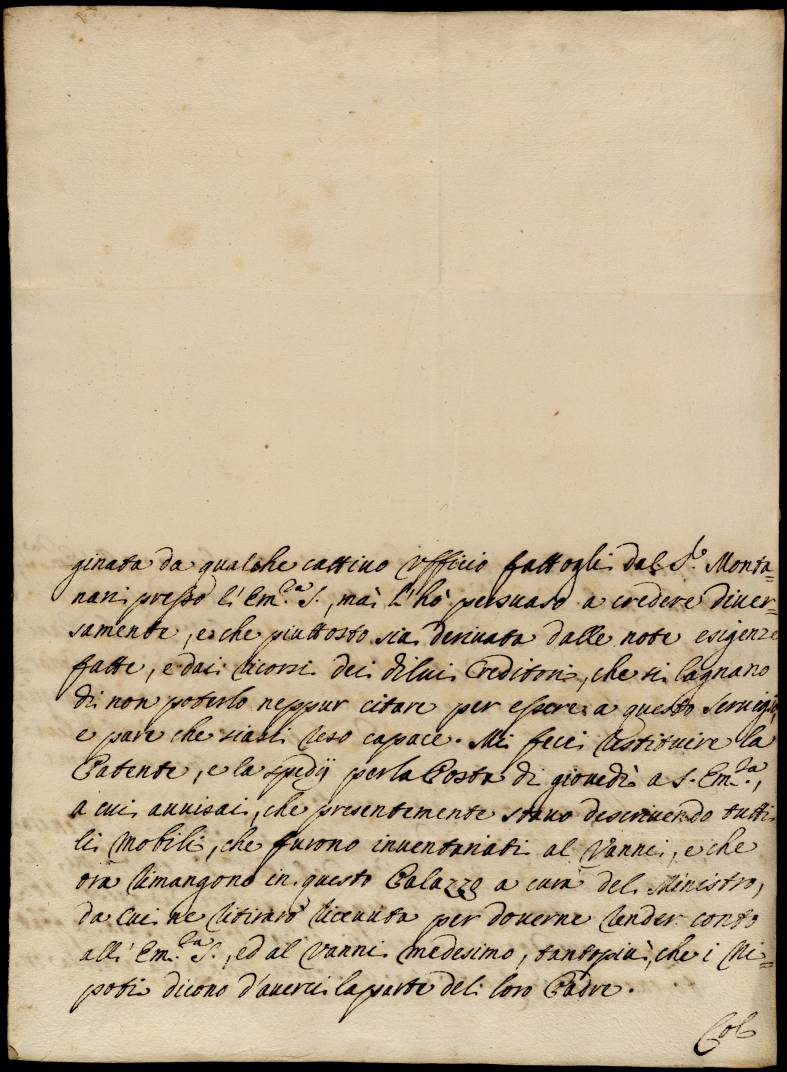 ginata da qualche cattivo Ufficio fattogli dal S.r Monta=
nari presso l'Em.za S., mà l'hò persuaso a credere diver=
samente, e che piuttosto sia derivata dalle note esigenze
fatte, e dai ricorsi dei dilui Creditori, che si lagnano
di non poterlo neppur citare per essere a questo Servigio,
e pare che siasi reso capace. Mi feci restituire la
Patente, e la spedij per la Posta di giovedì a S. Em.za,
a cui avvisai, che presentemente stavo descrivendo tutti
li mobili, che furono inventariati al Vanni, e che
ora rimangono in questo Palazzo a cura del Ministro,
da cui ne ritirarò ricevuta per doverne render conto
all'Em.za S., ed al Vanni medesimo, tantopiù, che i Ni=
poti dicono d'averci la parte del loro Padre.
Col